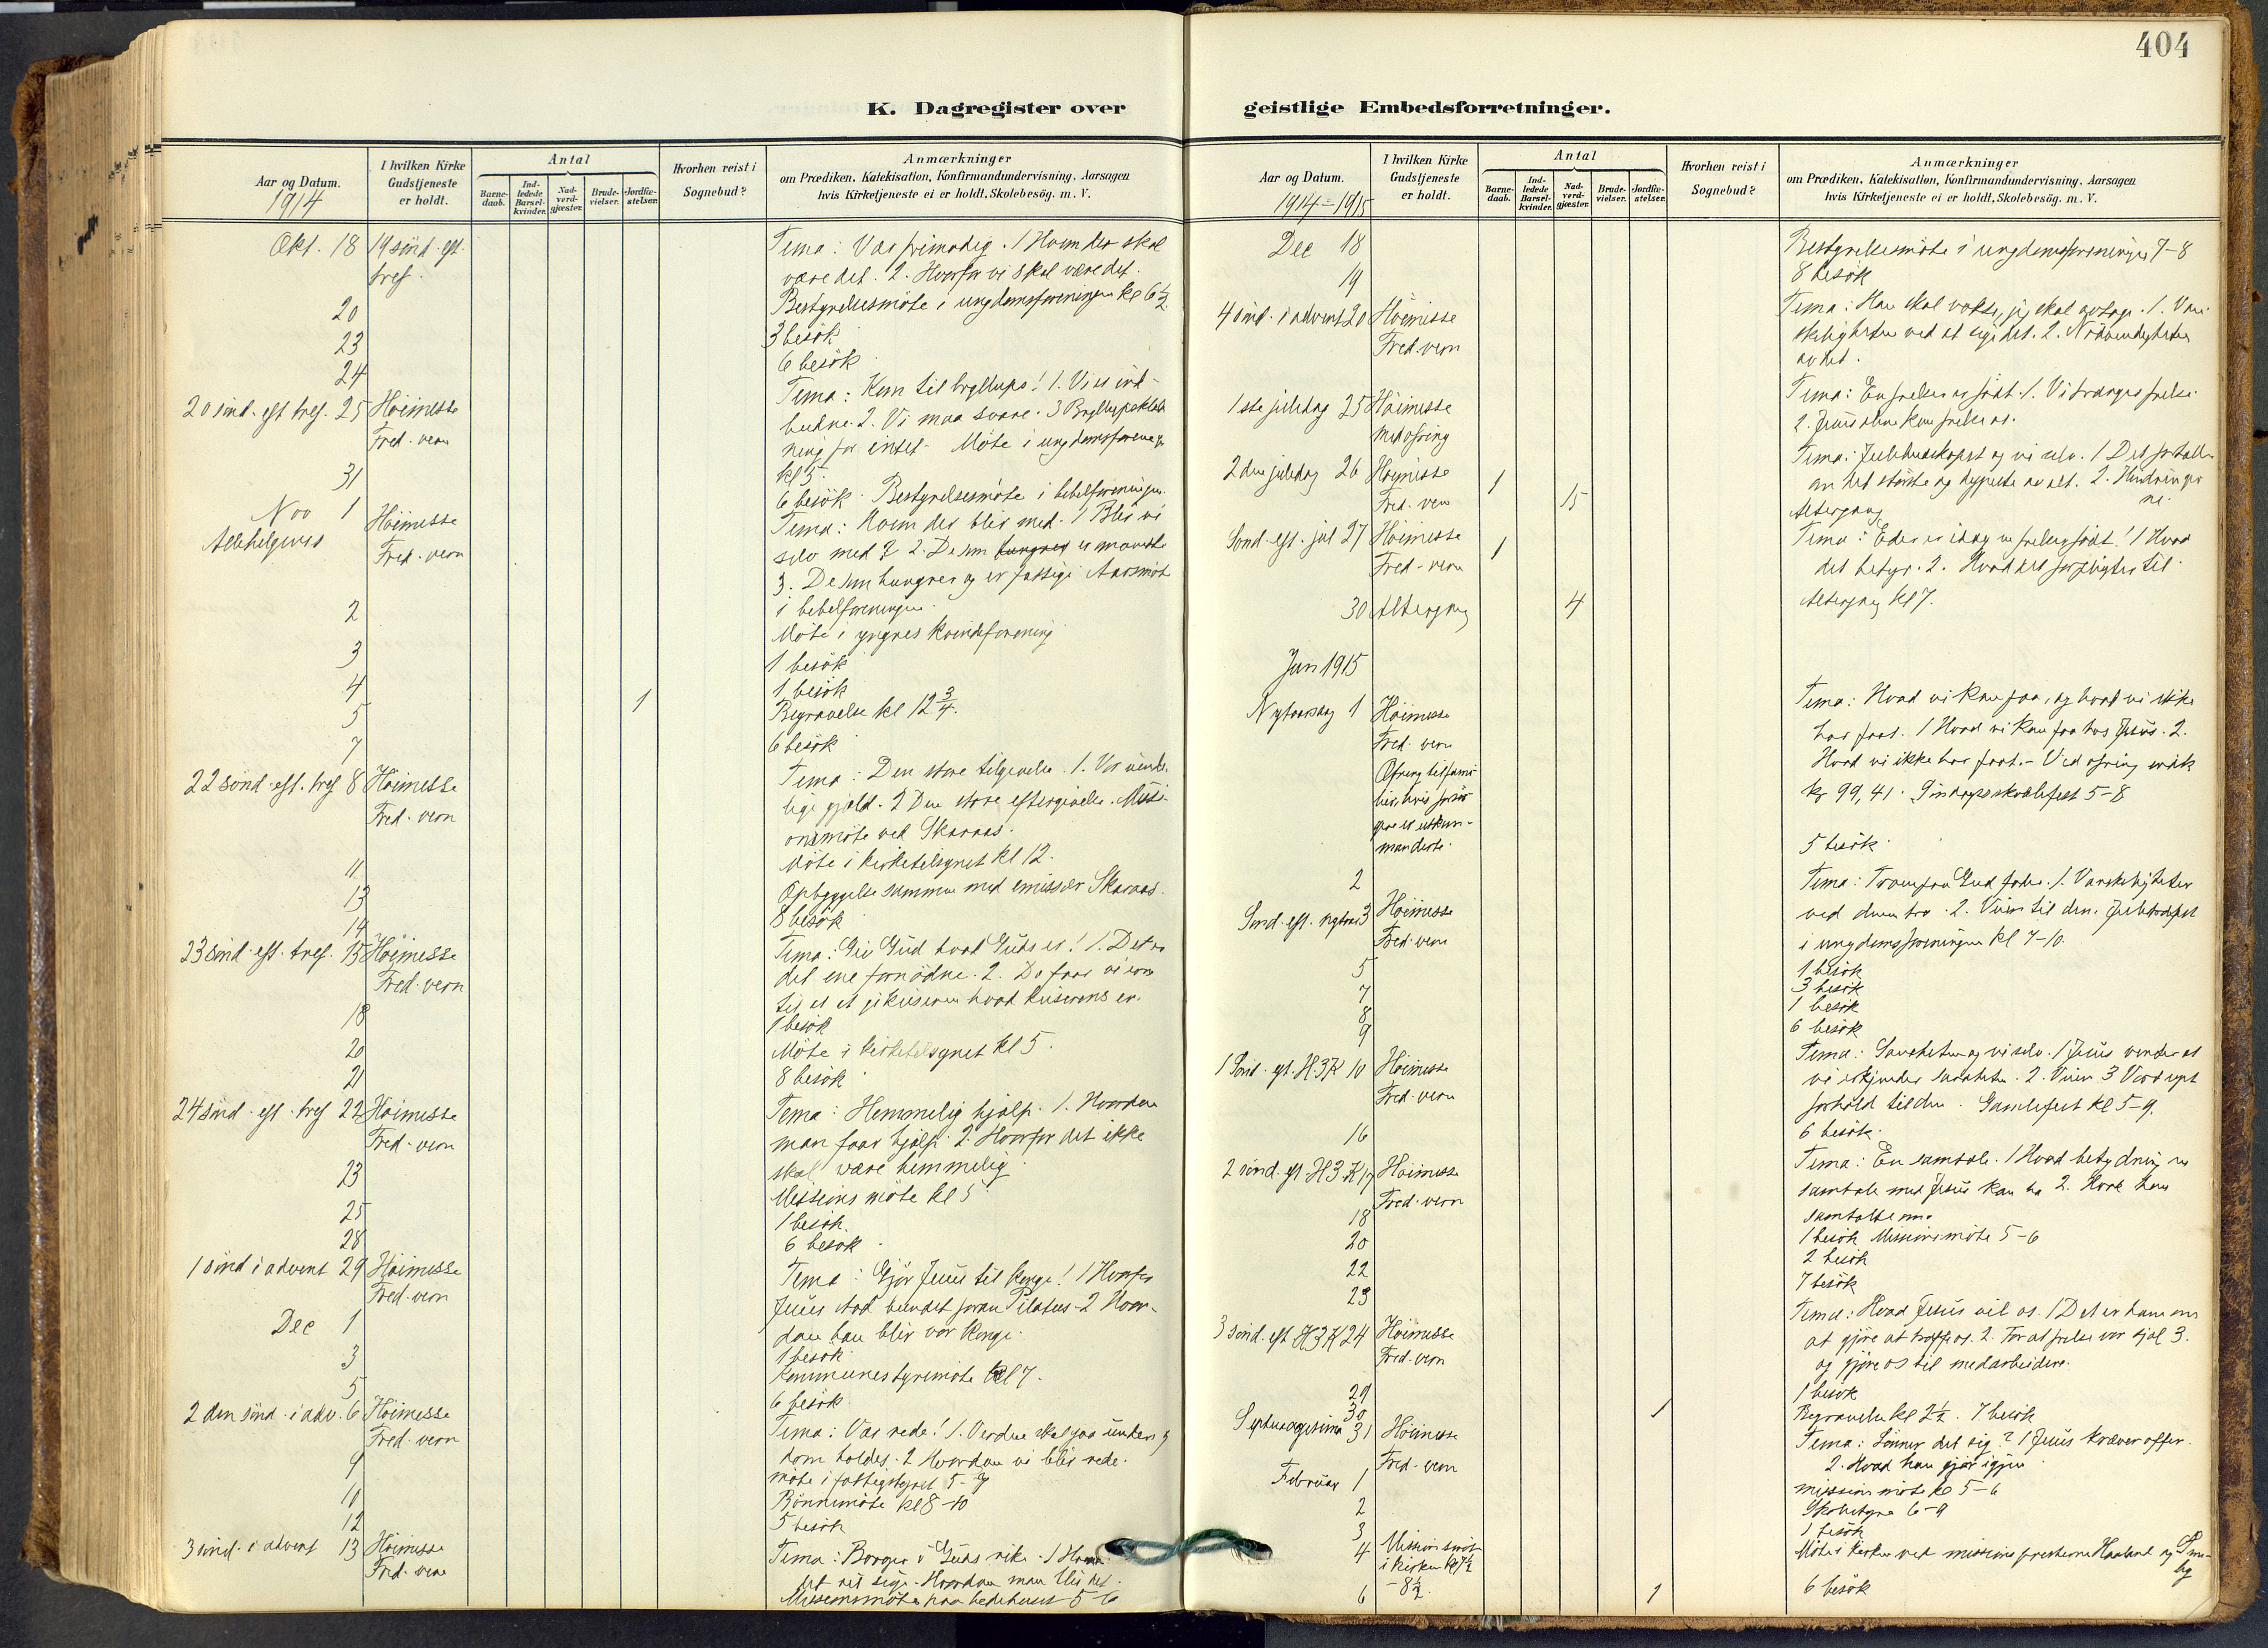 404
K. Dagregister over
Aar og Datum.
1914
I hvilken Kirke
Gudstjeneste
er holdt.
Antal
Barne-
daab.
Ind-
ledede
Barsel-
kvinder.
Nad-
verd-
gjæster.
Brude-
vielser.
Jordfæ-
stelser.
Hvorhen reist i
Sognebud?
Anmærkninger
om Prædiken, Katekisation, Konfirmandundervisning, Aarsagen
hvis Kirketjeneste ei er holdt, Skolebesög. m. V.
Okt. 18 19 sönd. eft. Tema: Vær frimodig. 1 Hvem der skal
tref. være det. 2. Hvorfor vi skal være det.
Bestyrelsesmöte i ungdomsforeningen kl 6½
20 3 besök
23 6 besök
24 Tema: Kom til bryllups! 1. Vi er ind-
20 sönd. eft tref. 25 Höimesse budne. 2. Vi maa svare. 3 Bryllupsklæd
Fred. vern ning for intet. Möte i ungdomsforening
kl 5.
31 6 besök. Bestyrelsesmöte i bebelforeningen.
Nov 1 Höimesse Tema: Hvem der blir med. 1 Blir vi
Allehelgens Fred. vern selv med? 2. De som hungrer er
3. De som hungrer og er fattige Aarsmöte
i bebelforeningen.
2 Möte i yngres kvindeforening
3 1 besök
4 1 besök
5 1 Begravelse kl 12 3/4.
7 6 besök
22 sönd. eft. tref 8 Höimesse Tema: Den store tilgivelse. 1. Vor uende-
Fred. vern lige gjæld. 2 Den store eftergivelse. Missi-
onsmöte ved Skaraas.
11 Möte i kirketilsynet kl 12.
13 Opbyggelse sammen med emissær Skaraas.
14 8 besök
23 sönd. eft. tref. 15 Höimesse Tema: Giv Gud hvad Guds er! 1. Det er
Fred. vern det ene fornödne. 2. Da faar vi
til at gi keiseren hvad keiserens er.
18 1 besök
20 Möte i kirketilsynet kl 5.
21 8 besök
24 sönd. eft. tref 22 Höimesse Tema: Hemmelig hjælp. 1. Hvordan
Fred. vern man faar hjælp. 2. Hvorfor det ikke
skal være hemmelig.
23 Missions möte kl 5.
25 1 besök.
28 6 besök
1 sönd i advent 29 Höimesse Tema: Gjör Jesus til konge! 1 Hvorfor
Fred. vern Jesus stod bundet foran Pilatus 2 Hvor-
dan han blir vor konge.
Dec 1 1 besök
3 Kommunestyremöte kl 7.
5 6 besök
2 den sönd. i adv. 6 Höimesse Tema: Vær rede! 1. Verden skal
Fred. vern dom holdes. 2 Hvordan vi blir rede.
9 möte i fattigstyret 5-7
10 Bönnemöte kl 8-10
12 5 besök
3 sönd. i advent 13 Höimesse Tema: Borger i Guds rike. 1 Hvad
Fred. vern det vil sige. Hvordan man blir det.
Missionsmöte paa bedehuset 5-6
geistlige Embedsforretninger.
Aar og Datum.
1914-1915
I hvilken Kirke
Gudstjeneste
er holdt.
Antal
Barne-
daab.
Ind-
ledede
Barsel-
kvinder.
Nad-
verd-
gjæster.
Brude-
vielser.
Jordfæ-
stelser.
Hvorhen reist i
Sognebud?
Anmærkninger
om Prædiken, Katekisation, Konfirmandundervisning, Aarsagen
hvis Kirketjeneste ei er holdt, Skolebesög. m. V.
Dec 18 Bestyrelsesmöte i ungdomsforeningen 7-8
19 8 besök
4 sönd. i advent 20 Höimesse Tema: Han skal vokse, jeg skal avtage. 1. Van-
Fred. vern skeligheten ved at sige det. 2. Nödvendigheten
av det.
1ste juledag 25 Höimesse Tema: En frelser er födt. 1. Vi trænger frelse.
med ofring 2. Jesus alene kan frelse os.
2den juledag 26 Höimesse 1 15 Tema: Julebudskapet og vi selv. 1 Det fortæller
Fred. vern om det störste og dypeste av alt. 2.
Altergang
Sönd. eft. jul 27 Höimesse 1 Tema: Eder er idag en frelser födt! 1 Hvad
Fred. vern det betyr. 2. Hvad det forpligter til.
30 Altergang 4 Altergang kl 7.
Jan 1915
Nytaarsdag 1 Höimesse Tema: Hvad vi kan faa, og hvad vi ikke
Fred. vern har faat. 1 Hvad vi kan faa hos Jesus. 2.
Ofring til fami- Hvad vi ikke har faat. - Ved ofring indk
lier, hvis forsör- kr 99,41. Söndagsskolefest 5-8
gere er utkom-
manderte.
2 5 besök
Sönd. eft. nytaar 3 Höimesse Tema: Troen paa Gud fader. 1. Vanskeligheter
Fred. vern ved denne tro. 2. Veien til den. Juletræfest
i ungdomsforeningen kl 7-10.
5 1 besök
7 3 besök
8 1 besök
9 6 besök
1 Sönd. eft. H.3K 10 Höimesse Tema: Sandheten og vi selv. 1 Jesus venter at
Fred. vern vi erkjender sandheten. 2. Veien 3 Vort
forhold til den. Gamlefest kl 5-9.
16 6 besök.
2 sönd. eft H3K 17 Höimesse Tema: En samtale. 1 Hvad betydning en
Fred. vern samtale med Jesus kan ha 2. Hvad han
samtalte om.
18 1 besök Missionsmöte 5-6
20 2 besök
22 7 besök
23
3 sönd. eft H3K 24 Höimesse Tema: Hvad Jesus vil os. 1 Det er ham om
Fred. vern at gjöre at træffe os. 2. For at frelse vor sjæl 3.
og gjöre os til medarbeidere.
29 1 besök
30 1 Begravelse kl 2½. 7 besök
Septuagesima 31 Höimesse Tema: Lönner det sig? 1 Jesus kræver offer.
Fred. vern 2. Hvad han gjör igjen
Februar 1 missionsmöte kl 5-6
2 Skolestyre 6-9
3 1 besök
4 Missionsmöte Möte i kirken ved missionspresterne Haaland og
i kirken kl 7½
- 8½.
6 1 6 besök